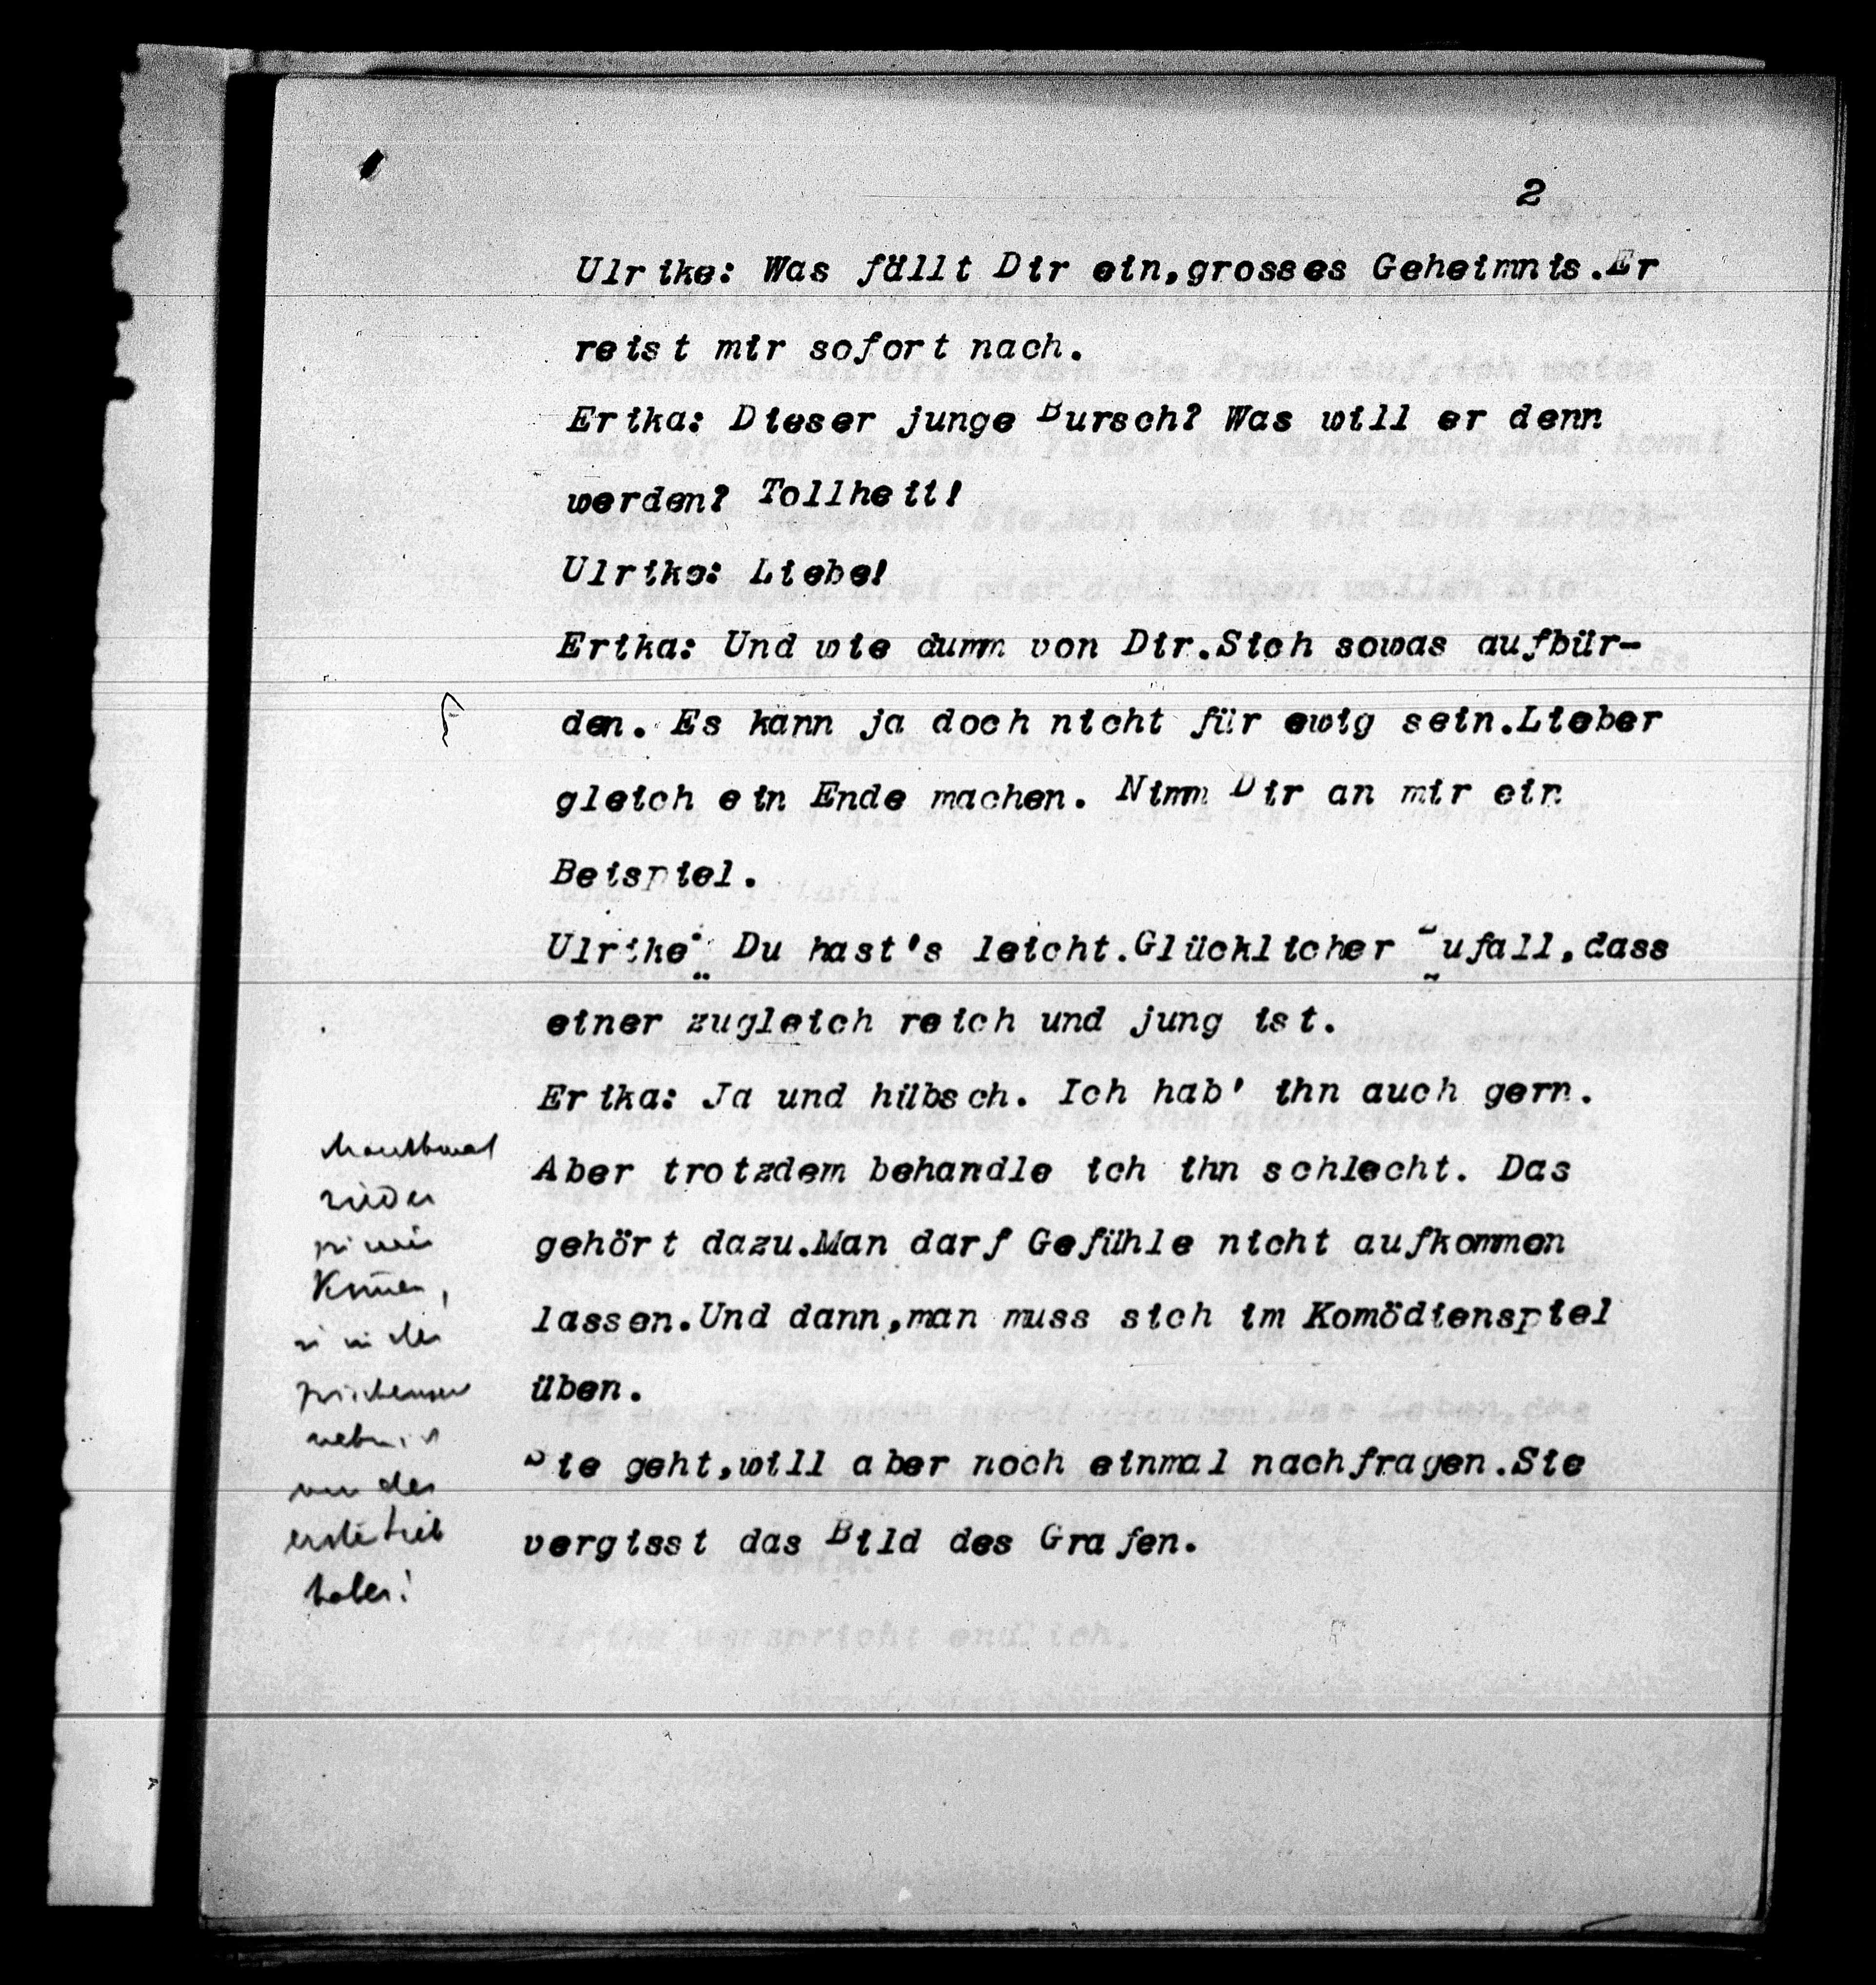 2
Ulrike: Was fällt Dir ein,grosses Geheimnis.Er
reist mir sofort nach.
Erika: Dieser junge Bursch? Was will er denn
werden? Tollheit!
Ulrike: Liebe!
Erika: Und wie dumm von Dir.Sich sowas aufbür-
den. Es kann ja doch nicht für ewig sein.Lieber
gleich ein Ende machen. Nimm Dir an mir ein
Beispiel.
Ulrike: Du hast's leicht.Glücklicher Zufall,dass
einer zugleich reich und jung ist.
Erika: Ja und hübsch. Ich hab' ihn auch gern.
Aber trotzdem behandle ich ihn schlecht. Das
gehört dazu.Man darf Gefühle nicht aufkommen
lassen.Und dann,man muss sich im Komödienspiel
üben.
Sie geht,will aber noch einmal nachfragen.Sie
vergisst das Bild des Grafen.
haben!